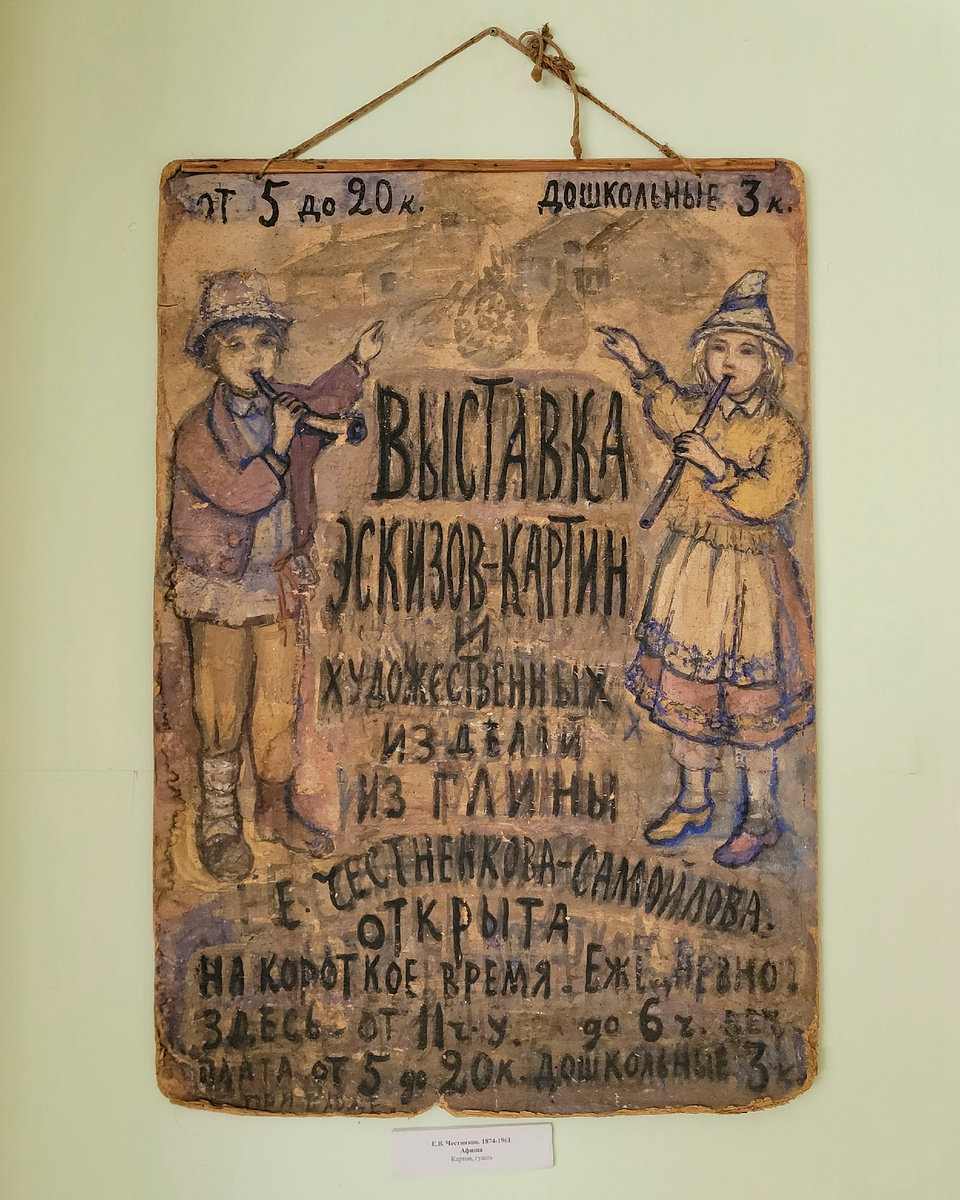 от 5 до 20 к. ДОШКОЛЬНЫЕ 3 к.
ВЫСТАВКА
ЭСКИЗОВ-КАРТИН
И
ХУДОЖЕСТВЕННЫХ
ИЗДЕЛИЙ
ИЗ ГЛИНЫ
Е. ЧЕСТНЕНКОВА-САМОЙЛОВА.
ОТКРЫТА
НА КОРОТКОЕ ВРЕМЯ. ЕЖЕДНЕВНО.
ЗДЕСЬ - ОТ 11 ч. у. до 6 ч. веч.
ПЛАТА от 5 до 20 к. ДОШКОЛЬНЫЕ 3 к.
Е.В. Честняков. 1874-1961
Афиша
Картон, гуашь